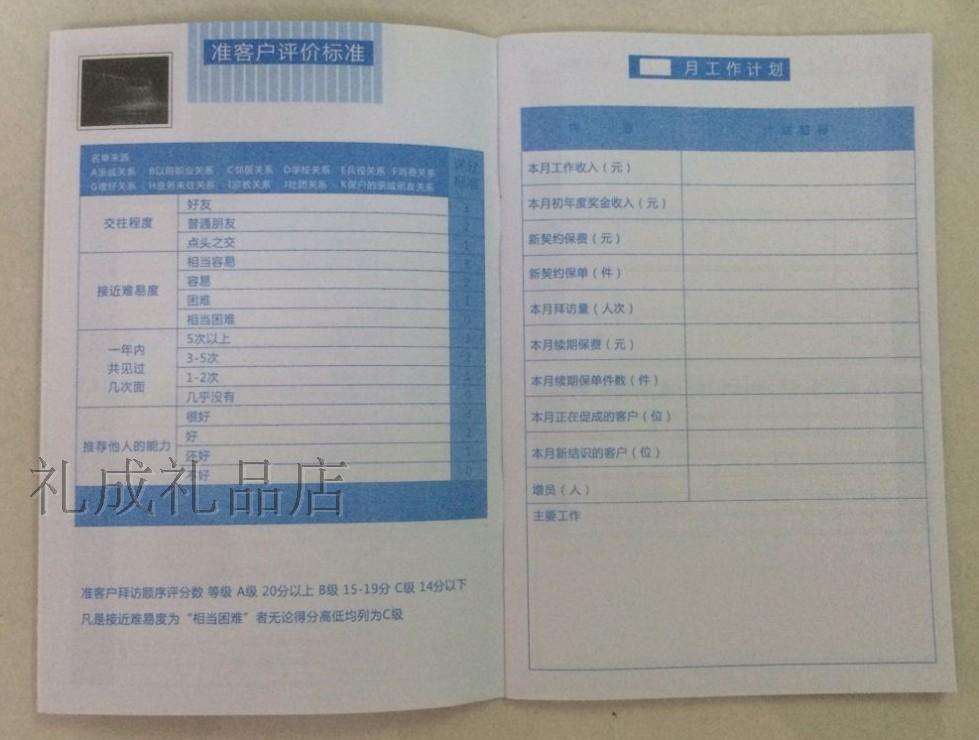 准客户评价标准
名单来源
A亲戚关系 B以前职业关系 C邻居关系 D学校关系 E兵役关系 F消费关系
G嗜好关系 H业务来往关系 I宗教关系 J社团关系 K保户的亲戚朋友关系
评分
标准
交往程度
好友
普通朋友
点头之交
接近难易度
相当容易
容易
困难
相当困难
一年内
共见过
几次面
5次以上
3-5次
1-2次
几乎没有
推荐他人的能力
很好
好
还好
不好
准客户拜访顺序评分数 等级 A级 20分以上 B级 15-19分 C级 14分以下
凡是接近难易度为“相当困难”者无论得分高低均列为C级
月工作计划
本月工作收入（元）
本月初年度奖金收入（元）
新契约保费（元）
新契约保单（件）
本月拜访量（人次）
本月续期保费（元）
本月续期保单件数（件）
本月正在促成的客户（位）
本月新结识的客户（位）
增员（人）
主要工作
礼成礼品店